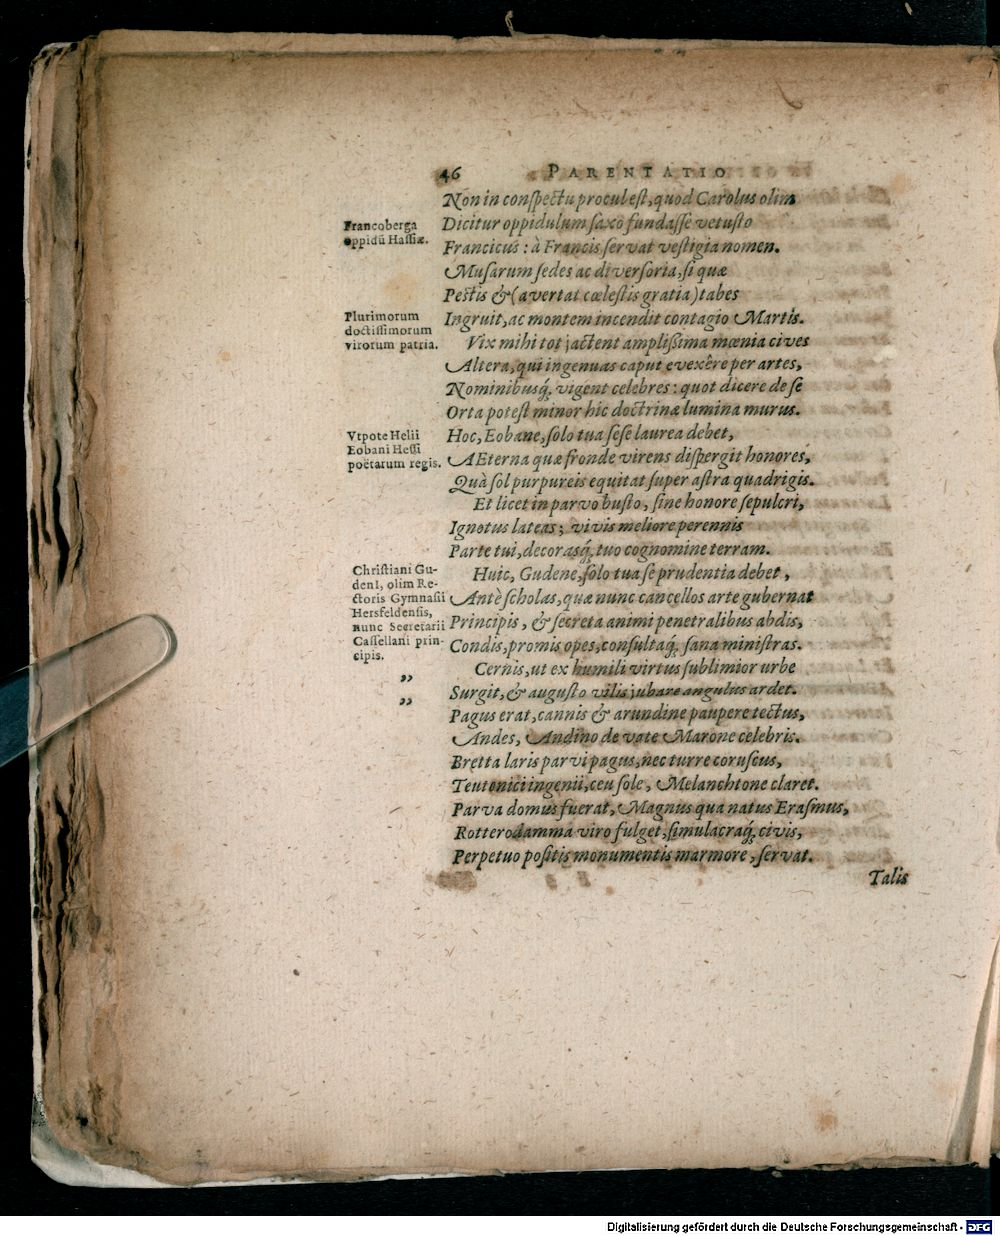 46 PARENTATIO
Non in conspectu procul est, quod Carolus olim
Dicitur oppidulum saxo fundasse vetusto
Francicus: à Francis servat vestigia nomen.
Musarum sedes ac diversoria, si quæ
Pestis & (avertat cœlestis gratia) tabes
Ingruit, ac montem incendit contagio Martis.
Vix mihi tot jactent amplissima mœnia cives
Altera, qui ingenuas caput evexêre per artes,
Nominibusq́; vigent celebres: quot dicere de se
Orta potest minor hic doctrinæ lumina murus.
Hoc, Eobane, solo tua sese laurea debet,
AEterna quæ fronde virens dispergit honores,
Quà sol purpureis equitat super astra quadrigis.
Et licet in parvo busto, sine honore sepulcri,
Ignotus lateas; vivis meliore perennis
Parte tui, decorasq́; tuo cognomine terram.
Huic, Gudene, solo tua se prudentia debet,
Antè scholas, quæ nunc cancellos arte gubernat
Principis, & secreta animi penetralibus abdis,
Condis, promis opes, consultaq́; sana ministras.
Cernis, ut ex humili virtus sublimior urbe
Surgit, & augusto vilis jubare angulus ardet.
Pagus erat, cannis & arundine paupere tectus,
Andes, Andino de vate Marone celebris.
Bretta laris parvi pagus, nec turre coruscus,
Teutonici ingenii, ceu sole, Melanchtone claret.
Parva domus fuerat, Magnus qua natus Erasmus,
Rotterodamma viro fulget, simulacraq́; civis,
Perpetuo positis monumentis marmore, servat.
Talis
Francoberga
oppidū Hassiæ.
Plurimorum
doctissimorum
virorum patria.
Vtpote Helii
Eobani Hessi
poëtarum regis.
Christiani Gu-
deni, olim Re-
ctoris Gymnasii
Hersfeldensis,
nunc Secretarii
Cassellani prin-
cipis.
„
„
Digitalisierung gefördert durch die Deutsche Forschungsgemeinschaft - DFG